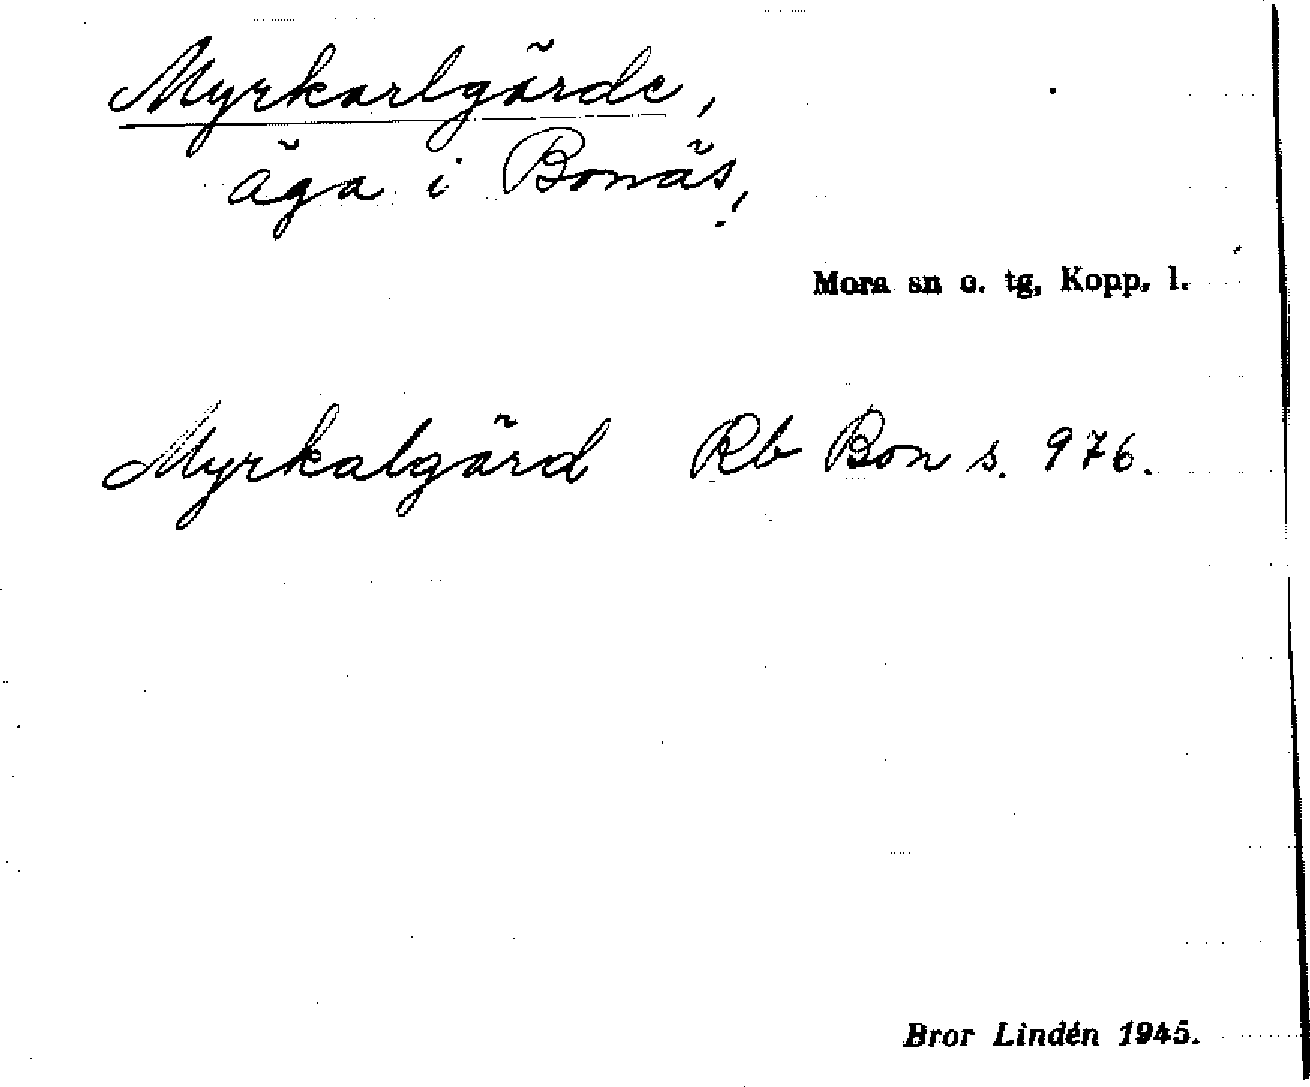 Myrkarlgärde,
äga i Bonäs,
Mora sn o. tg, Kopp. l.
Myrkalgärd Rb Bon s. 976.
Bror Lindén 1945.